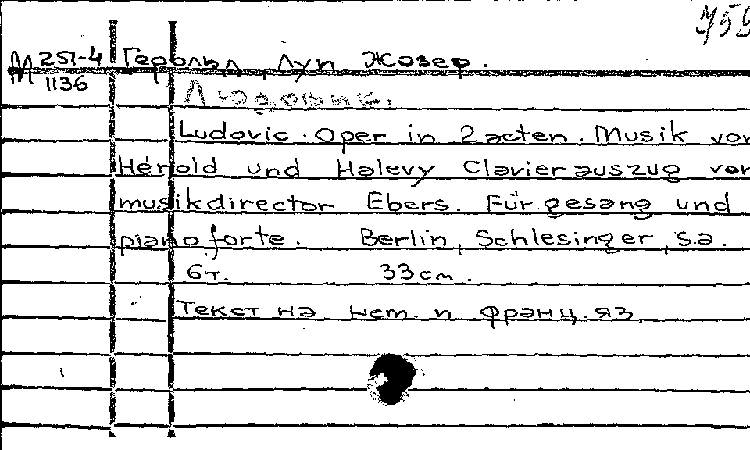 755
М 251-4 Герольд, Луи Жозеф.
1136
Людовик.
Ludovic. Oper in 2 acten. Musik von
Hérold und Halevy Clavierauszug von
musikdirector Ebers. Für gesang und
pianoforte. Berlin, Schlesinger, s.a.
6т. 33 cm.
Текст на нем. и франц. яз.